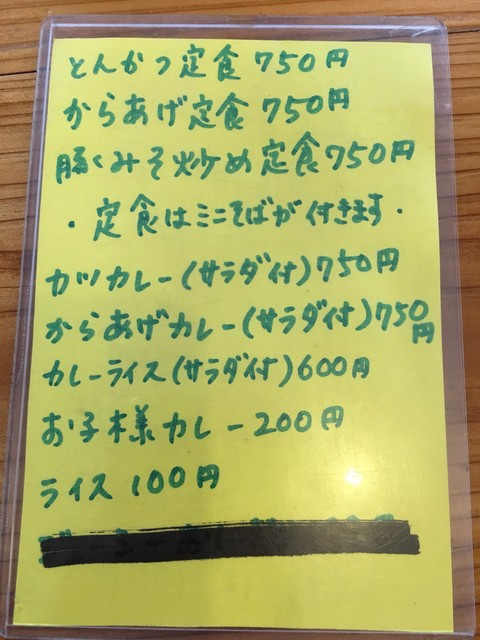 とんかつ定食 750円
からあげ定食 750円
豚くみそ炒め定食750円
・定食はミニそばが付きます・
カツカレー(サラダ付)750円
からあげカレー(サラダ付)750円
カレーライス(サラダ付)600円
お子様カレー200円
ライス 100円